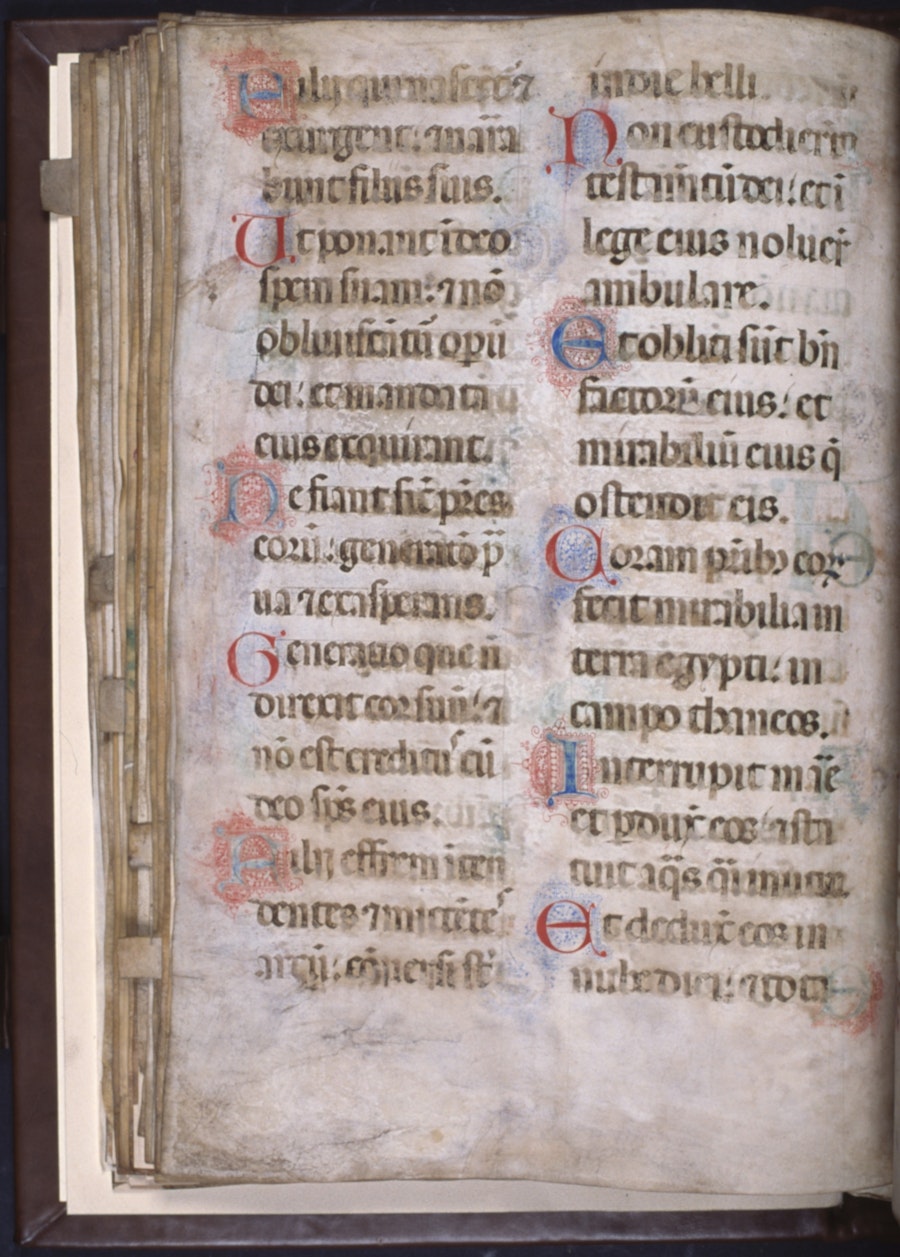 Filii qui nascētᷣ ⁊
exurgent: ⁊ narra
bunt filiis suis.
Ut ponant ī deo
spem suam: ⁊ nō
obliuiscātᷣ opū
dei: et mandata
eius exquirant.
Ne fiant sic̄ pr̄es
eorū: generatio p̄
ua ⁊ exasperans.
Generatio que n̄
direxit cor suū: ⁊
nō est creditus cū
deo sp̄s eius.
Filij effrem īten
dentes ⁊ mittētes
arcū: cōuersi st̄
in die belli.
Non custodierūt
testam̄tū dei: et ī
lege eius noluer̄
ambulare.
Et obliti sūt bn̄
factorū eius: et
mirabiliū eius q̄
ostendit eis.
Coram pr̄ibꝫ eoꝝ
fecit mirabilia in
terra egypti: in
campo thaneos.
Interrupit mare
et ꝑdux̄ eos: ⁊ sta
tuit aq̄s q̄i in utre
Et dedux̄ eos in
nube diei: ⁊ tota